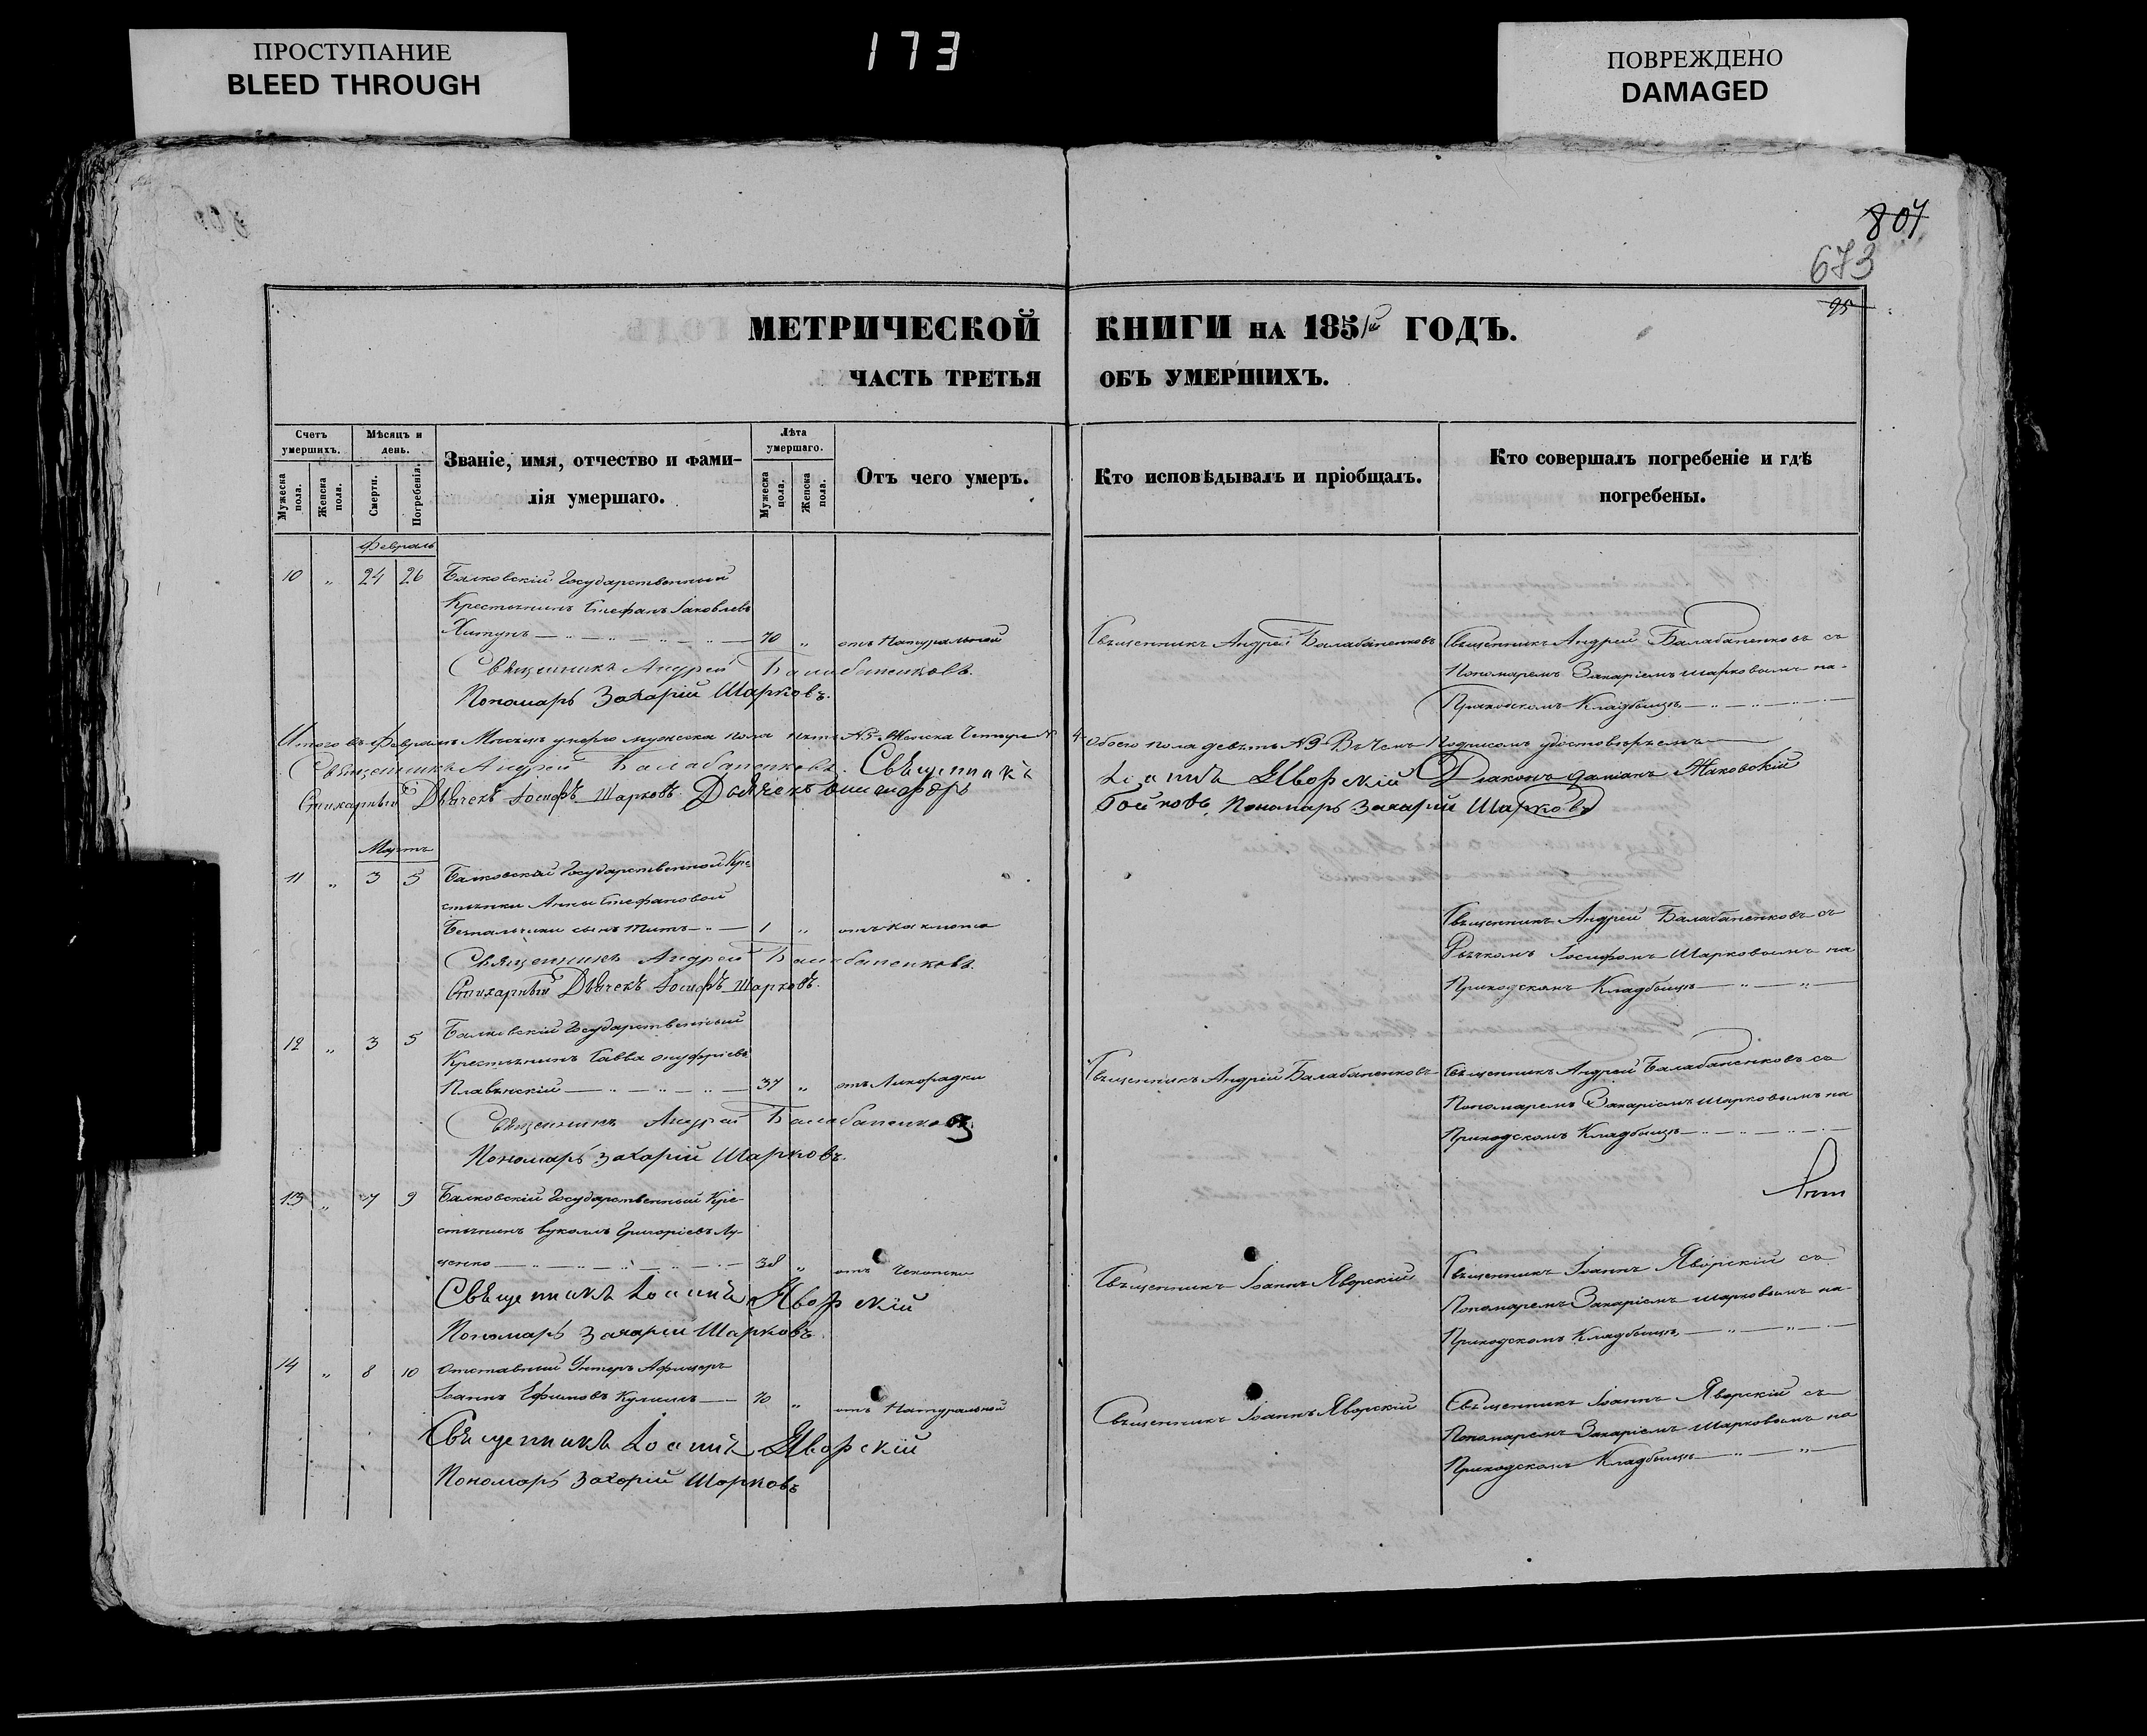 ПРОСТУПАНИЕ
BLEED THROUGH
173
ПОВРЕЖДЕНО
DAMAGED
807
673
95
МЕТРИЧЕСКОЙ КНИГИ НА 1851й ГОДЪ.
ЧАСТЬ ТРЕТЬЯ ОБЪ УМЕРШИХЪ.
Счетъ умершихъ.
Мужеска пола.
Женска пола.
Мѣсяцъ и день.
Смерти.
Погребенія.
Званіе, имя, отчество и фами-
лія умершаго.
Лѣта умершаго.
Мужеска пола.
Женска пола.
Отъ чего умеръ.
Кто исповѣдывалъ и пріобщалъ.
Кто совершалъ погребеніе и гдѣ
погребены.
Февраль
10 „ 24 26 Балковскій Государственный
Крестьянинъ Стефанъ Іаковлевъ
Хитунъ 70 „ отъ Натуральной
Священникъ Андрей Балабаненковъ
Священникъ Андрей Балабаненковъ съ
Пономаремъ Захаріемъ Шарковымъ на
Приходскомъ Кладбищѣ
Священникъ Андрей Балабаненковъ.
Пономарь Захарій Шарковъ.
Итого въ Февралѣ Мѣсяцѣ умерло мужеска пола пять №5 Женска Четыре № 4 Обоего пола девять №9 Въ Чемъ Подписомъ удостовѣряемъ
Священникъ Андрей Балабаненковъ. Священникъ Іоаннъ Яворскій Діаконъ Даміанъ Маковскій
Стихарный Дьячекъ Іосифъ Шарковъ. Дьячекъ Бойковъ, Пономарь Захарій Шарковъ
Мартъ
11 „ 3 5 Балковской Государственной Кре-
стьянки Анны Стефановой
сынъ Титъ 1 „ отъ Каклюша
Священникъ Андрей Балабаненковъ съ
Дьячкомъ Іосифомъ Шарковымъ на
Приходскомъ Кладбищѣ
Священникъ Андрей Балабаненковъ.
Стихарный Дьячекъ Іосифъ Шарковъ.
12 „ 3 5 Балковскій Государственный
Крестьянинъ Савва Онуфріевъ
Плавѣнскій 37 „ отъ Лихорадки
Священникъ Андрій Балабаненковъ
Священникъ Андрей Балабаненковъ съ
Пономаремъ Захаріемъ Шарковымъ на
Приходскомъ Кладбищѣ
Священникъ Андрей Балабаненковъ
Пономарь Захарій Шарковъ.
13 „ 7 9 Балковскій Государственный Кре-
стьянинъ Вуколъ Григоріевъ Лу-
ценко 38 „ отъ Чехотки
Священникъ Іоаннъ Яворскій
Священникъ Іоаннъ Яворскій съ
Пономаремъ Захаріемъ Шарковымъ на
Приходскомъ Кладбищѣ
Священникъ Іоаннъ Яворскій
Пономарь Захарій Шарковъ.
14 „ 8 10 Отставный Унтеръ Афицеръ
Іоаннъ Ефимовъ 70 „ отъ Натуральной
Священникъ Іоаннъ Яворскій
Священникъ Іоаннъ Яворскій съ
Пономаремъ Захаріемъ Шарковымъ на
Приходскомъ Кладбищѣ
Священникъ Іоаннъ Яворскій
Пономарь Захарій Шарковъ